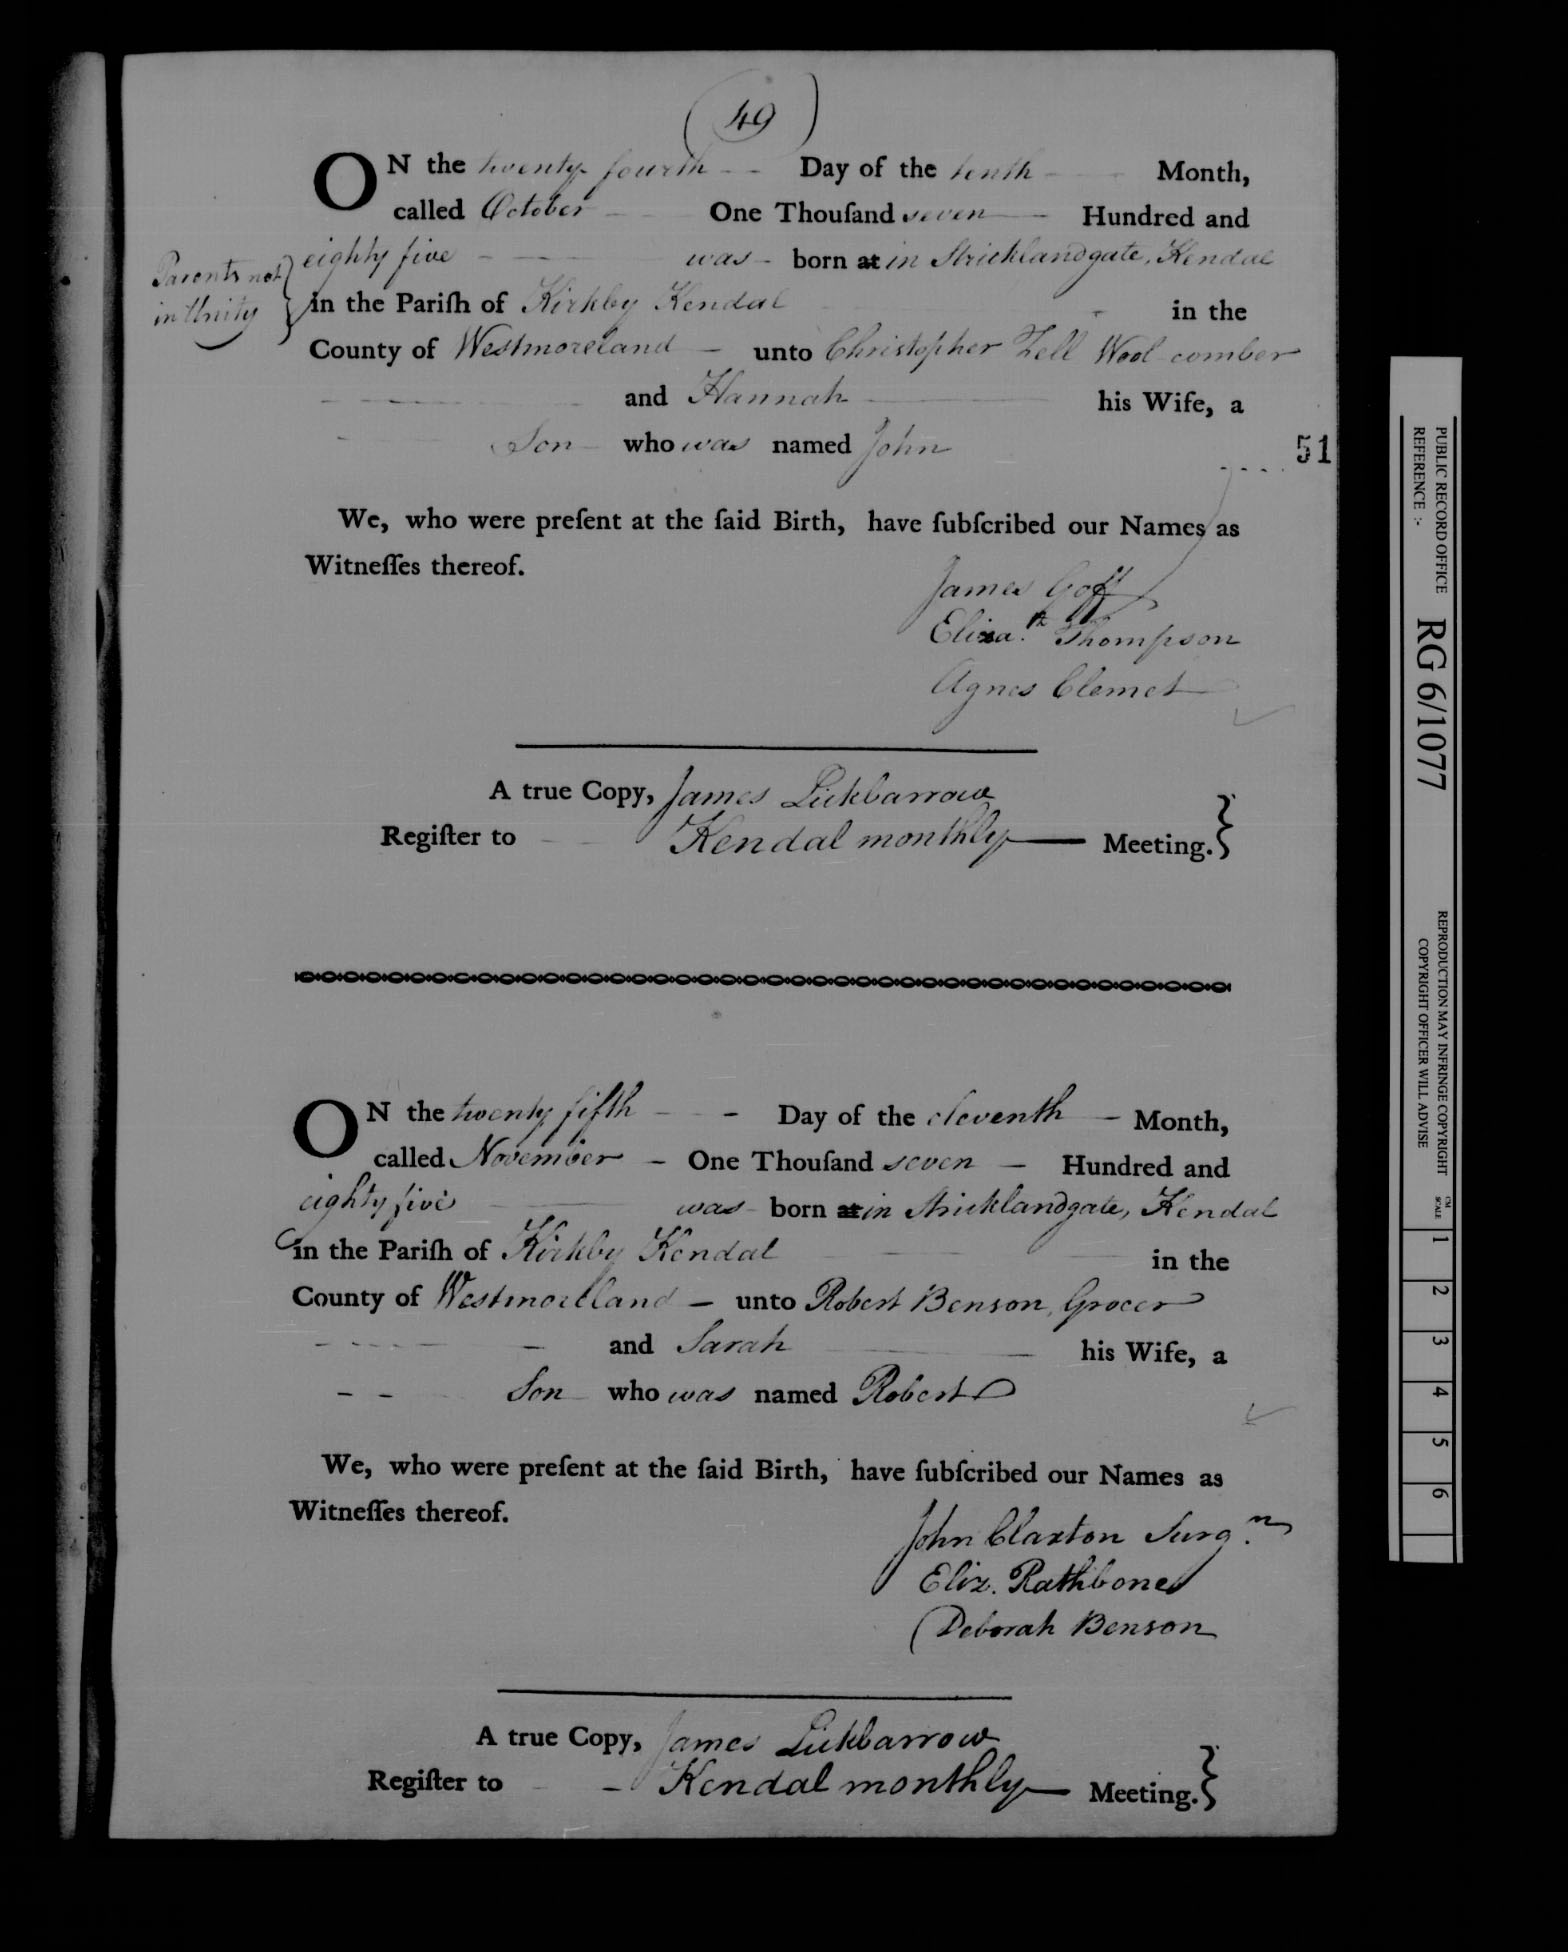 (49)
ON the twenty fourth Day of the tenth Month,
called October One Thouſand seven Hundred and
eighty five was born at in Stricklandgate, Kendal
Parents not
in Unity
in the Pariſh of Kirkby Kendal in the
County of Westmoreland unto Christopher Fell Wool comber
and Hannah his Wife, a
Son who was named John
51
We, who were preſent at the ſaid Birth, have ſubſcribed our Names as
Witneſſes thereof.
James Goff
Eliza.th Thompson
Agnes Clemet
A true Copy, James Lickbarrow
Regiſter to Kendal monthly Meeting.
ON the twenty fifth Day of the eleventh Month,
called November One Thouſand seven Hundred and
eighty five was born at in Stricklandgate, Kendal
in the Pariſh of Kirkby Kendal in the
County of Westmoreland unto Robert Benson, Grocer
and Sarah his Wife, a
Son who was named Robert
We, who were preſent at the ſaid Birth, have ſubſcribed our Names as
Witneſſes thereof.
John Claxton Surg.n
Eliz. Rathbone
Deborah Benson
A true Copy, James Lickbarrow
Regiſter to Kendal monthly Meeting.
PUBLIC RECORD OFFICE
REFERENCE :-
RG 6/1077
REPRODUCTION MAY INFRINGE COPYRIGHT
COPYRIGHT OFFICER WILL ADVISE
CM
SCALE
1
2
3
4
5
6